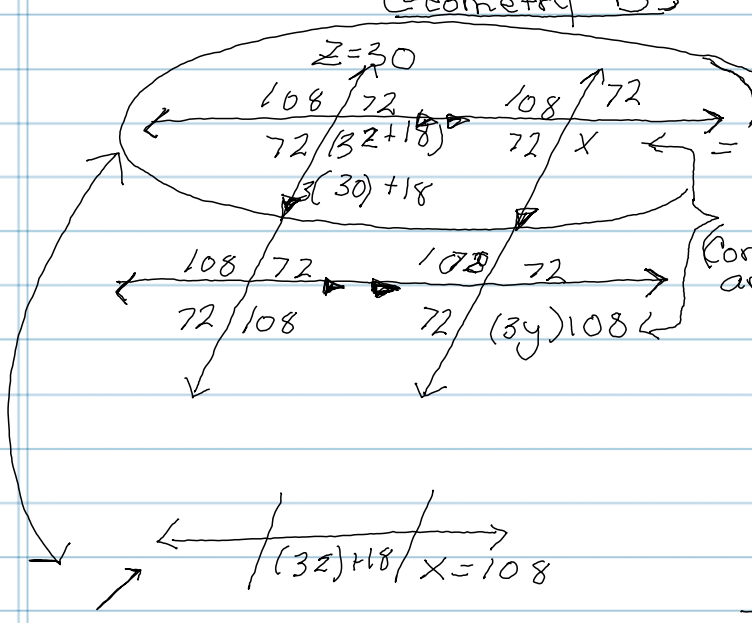 Geometry
Z=30
108 72 108 72
72 (3z+18) 72 X =
3(30)+18
108 72 108 72
72 108 72 (3y)108
(3z)+18 X=108